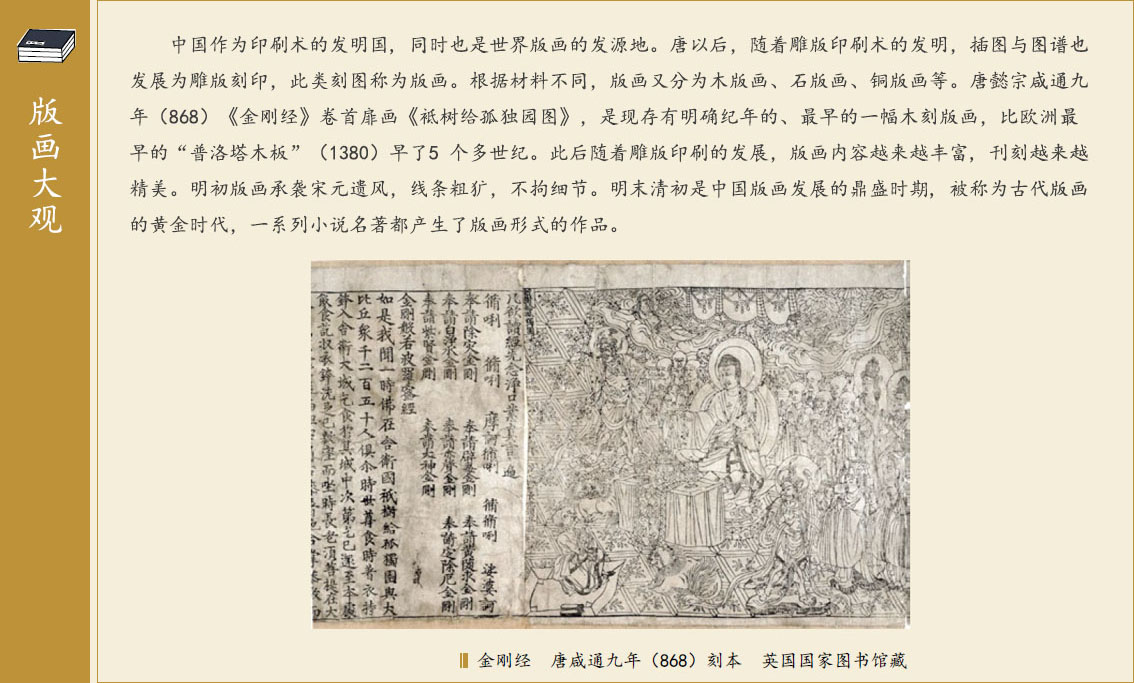 版画大观
中国作为印刷术的发明国，同时也是世界版画的发源地。唐以后，随着雕版印刷术的发明，插图与图谱也
发展为雕版刻印，此类刻图称为版画。根据材料不同，版画又分为木版画、石版画、铜版画等。唐懿宗戚通九
年（868）《金刚经》卷首扉画《祗树给孤独园图》，是现存有明确纪年的、最早的一幅木刻版画，比欧洲最
早的“普洛塔木板”（1380）早了5 个多世纪。此后随着雕版印刷的发展，版画内容越来越丰富，刊刻越来越
精美。明初版画承袭宋元遗风，线条粗犷，不拘细节。明末清初是中国版画发展的鼎盛时期，被称为古代版画
的黄金时代，一系列小说名著都产生了版画形式的作品。
凡欲讀經先念淨口業真言一遍
脩唎 脩唎 摩訶脩唎 脩脩唎 娑婆訶
奉請除灾金剛 奉請辟毒金剛 奉請黃随求金剛
奉請白淨水金剛 奉請赤聲金剛 奉請定除厄金剛
奉請紫賢金剛 奉請大神金剛
金剛般若波羅蜜經
如是我聞一時佛在舍衛國祇樹給孤獨園與大
比丘衆千二百五十人俱尒時世尊食時著衣持
鉢入舍衛大城乞食於其城中次第乞已還至本處
飯食訖收衣鉢洗足已敷座而坐時長老須菩提在大
金刚经 唐戚通九年（868）刻本 英国国家图书馆藏